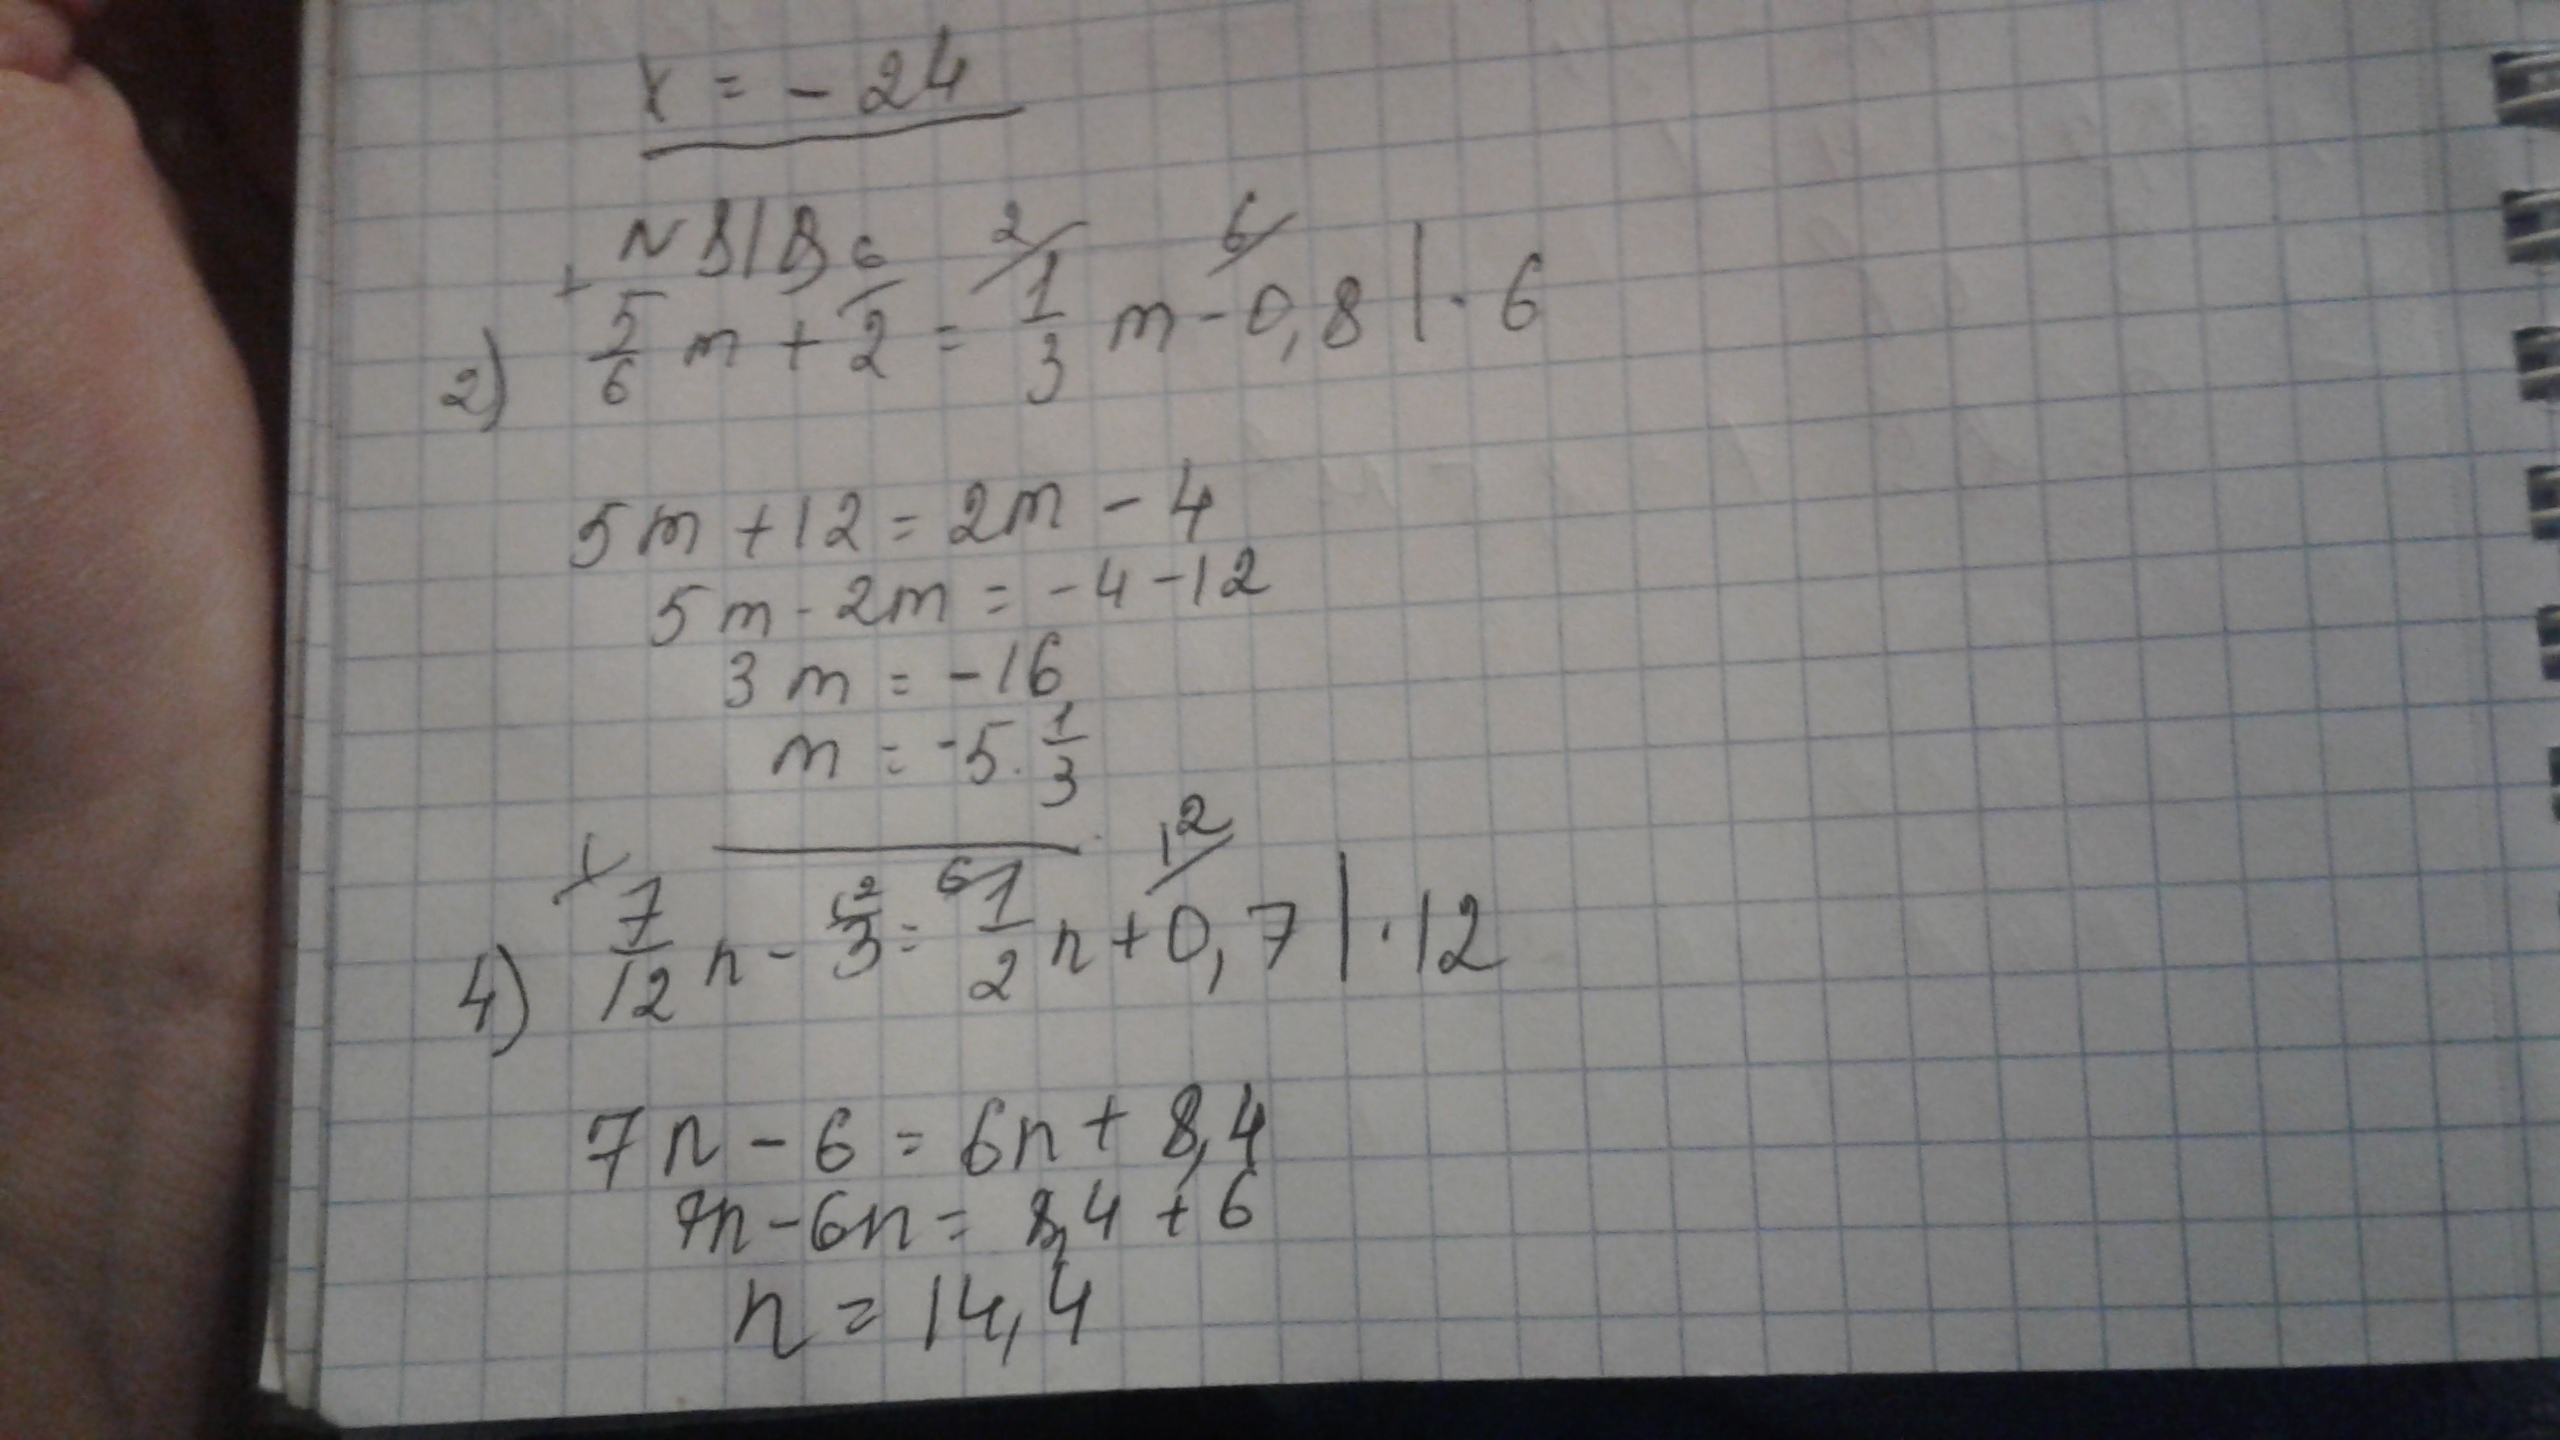 x = - 24
2) 5/6 m + 2 = 1/3 m - 0,8 | · 6
5m + 12 = 2m - 4
5m - 2m = -4 - 12
3m = -16
m = -5 1/3
4) 7/12 n - 3 = 1/2 n + 0,7 | · 12
7n - 6 = 6n + 8,4
7n - 6n = 8,4 + 6
n = 14,4